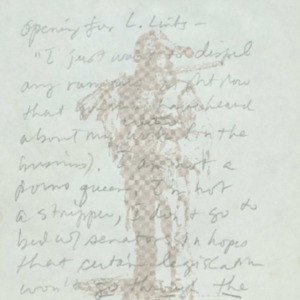 Opening for L. Lints –
"I just want to dispel
any rumours right now
that you have heard
about me,
business). I am not a
porno queen. I'm not
a stripper, I don't go to
bed w/ senators in hopes
that certain legislation
won't go through the